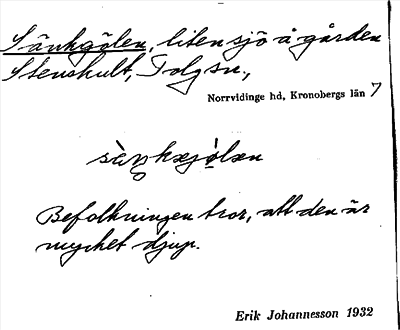 Sänkgölen, liten sjö å gården
Stenshult, Tolg sn,
Norrvidinge hd, Kronobergs län 7
Befolkningen tror, att den är
mycket djup.
Erik Johannesson 1932